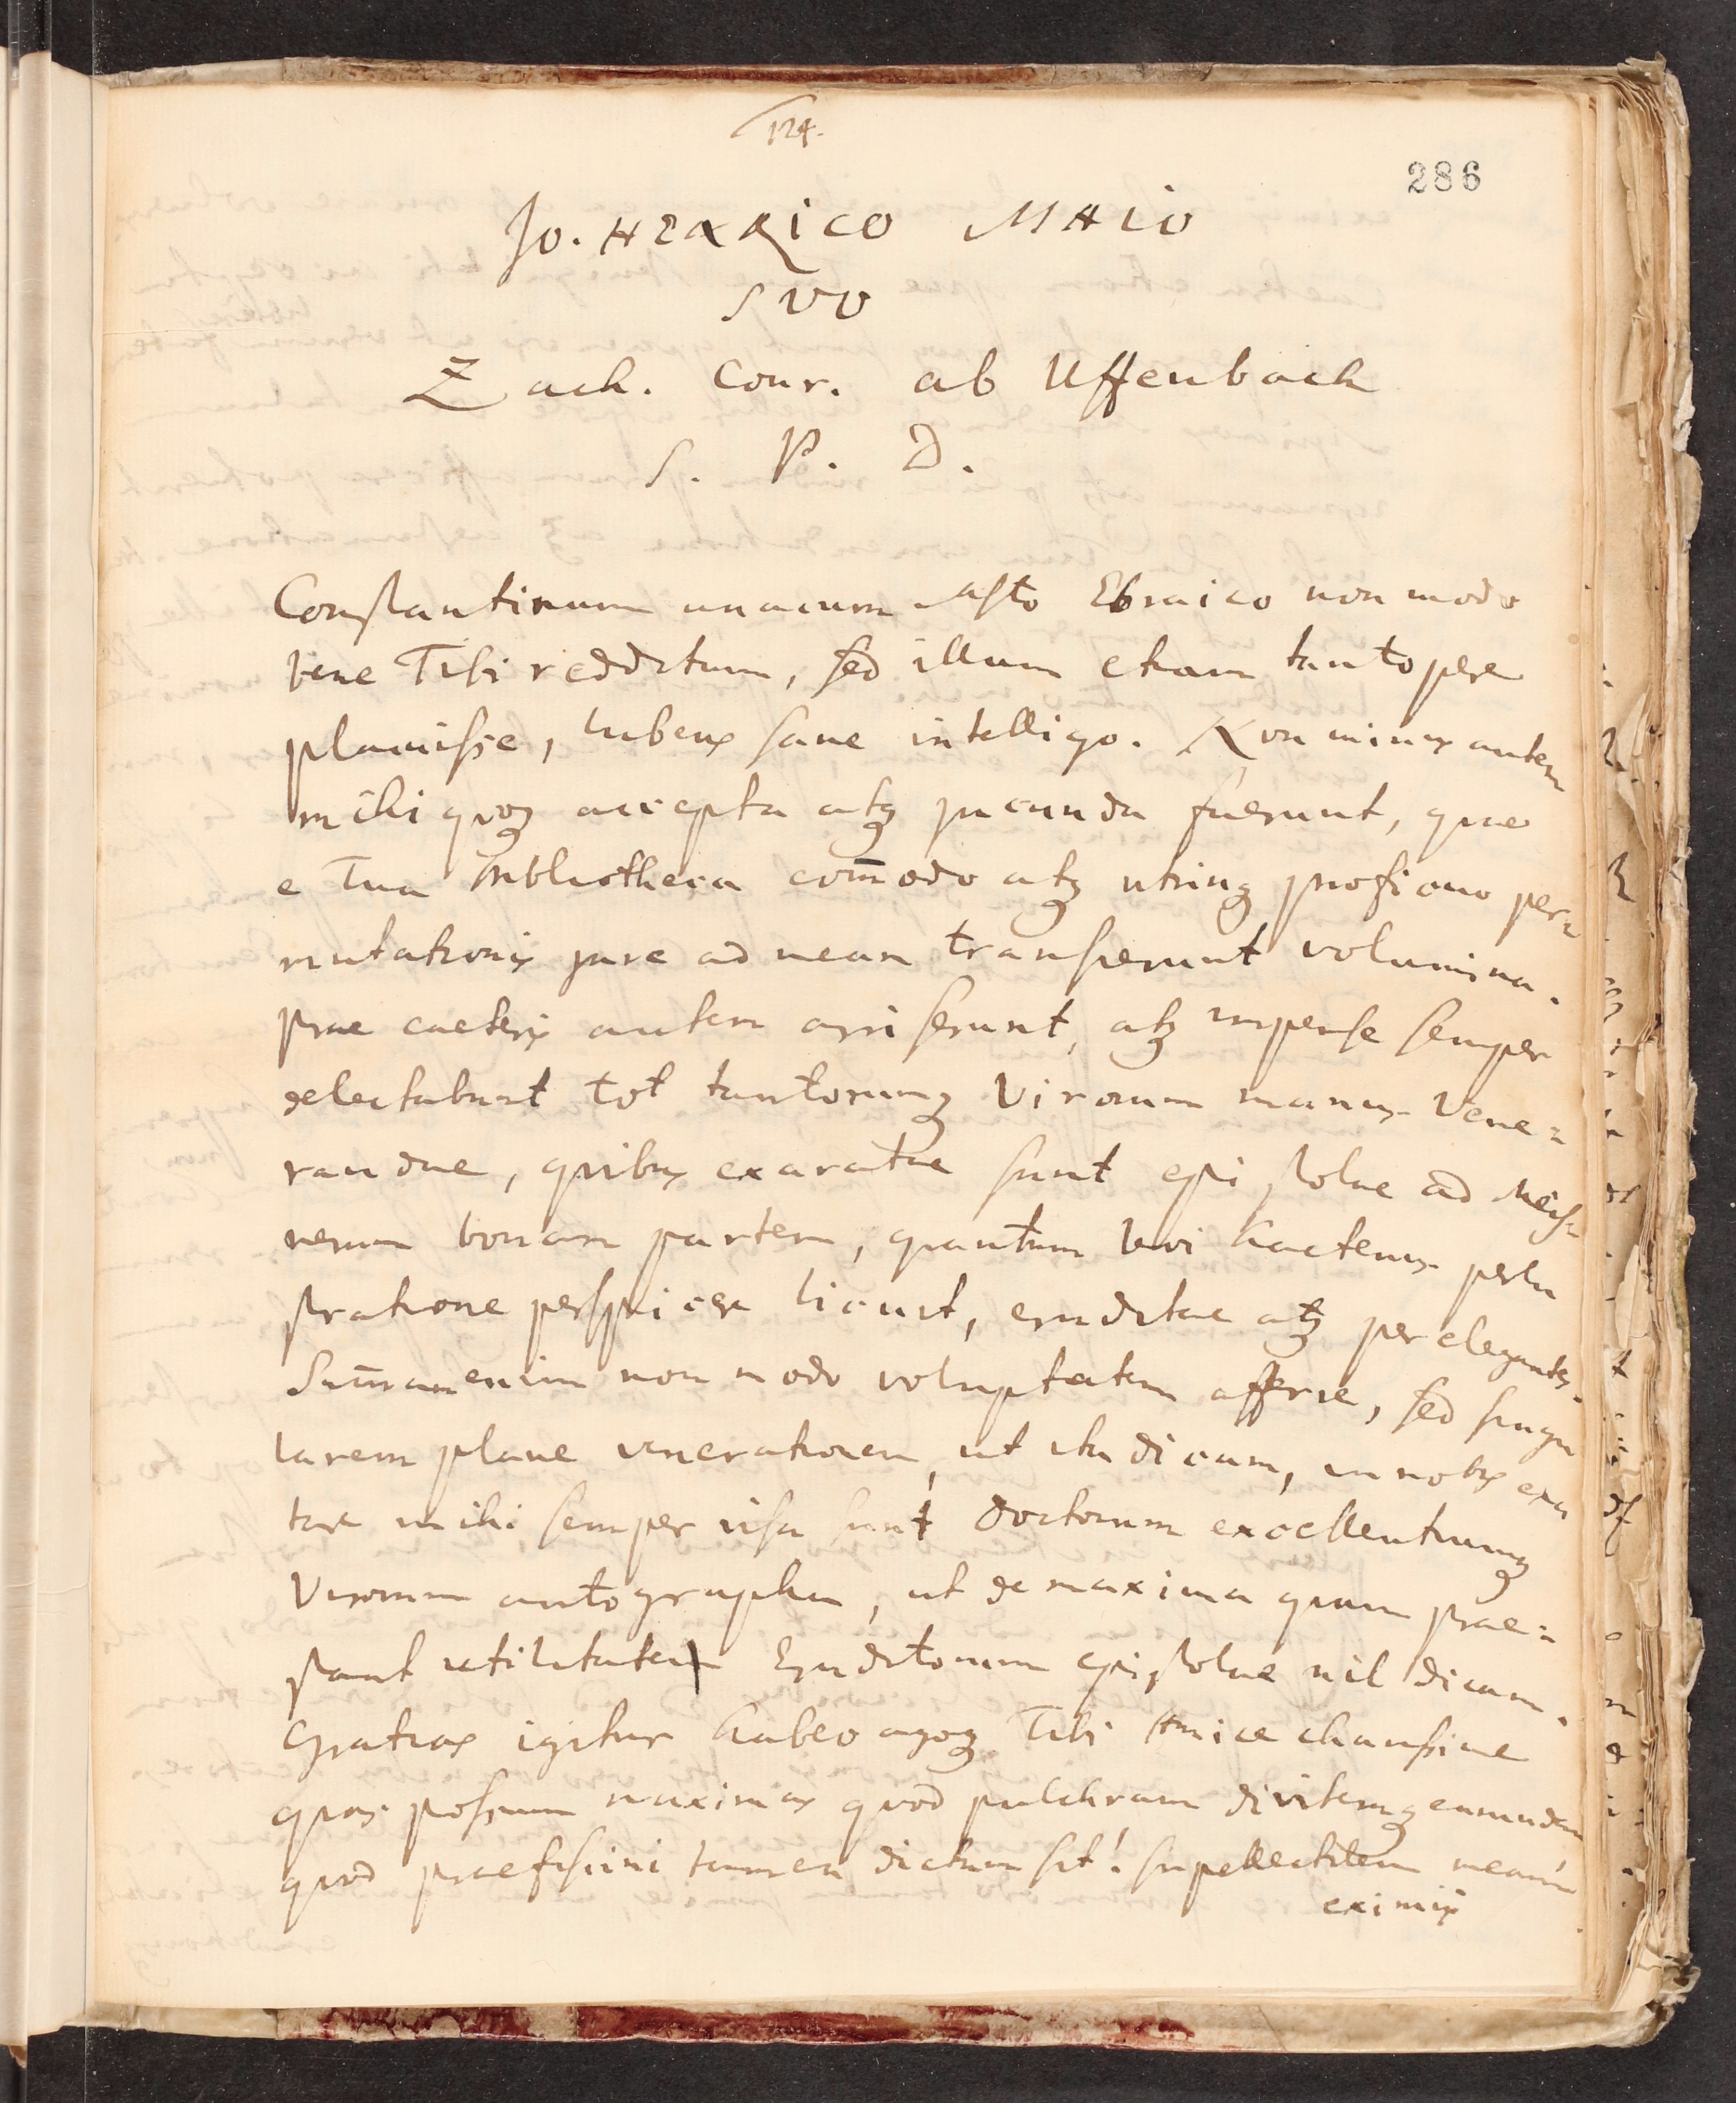 124.
286
Jo. HENRICO MAIO
SUO
Zach. Conr. ab Uffenbach
S. P. D.
Constantinum unacum Ebraico non modo
bene Tibi redditum, sed illum etiam tantopere
placuisse, lubens sane intelligo. Non minus autem
mihi quoq accepta atq jucunda fuerunt, quae
e Tua Bibliotheca com̄odo atq utrinq proficuo per=
mutationis jure ad meam transierunt volumina.
prae caeteris autem arriserunt, atq impense semper
delectabunt tot tantorumq Virorum manus Vene=
randae, quibus exaratae sunt epistolae ad Meis=
nerum bonam partem, quantum levi hactenus perlu
stratione perspicere licuit, eruditae atq perelegantes.
Sum̄am enim non modo voluptatem afferre, sed singu
larem plane venerationem, ut ita dicam, in nobis exci
tare mihi semper visa sunt doctorum excellentiumq
Virorum autographa, ut de maxima quam prae=
stant utilitatem Eruditorum epistolae nil dicam.
Gratias igitur habeo agoq Tibi Amice charissime
quas possum maximas quod pulchram divitemq eamndam
quod praefiscini tamen dictum sit! supellectilem meam
eximijs